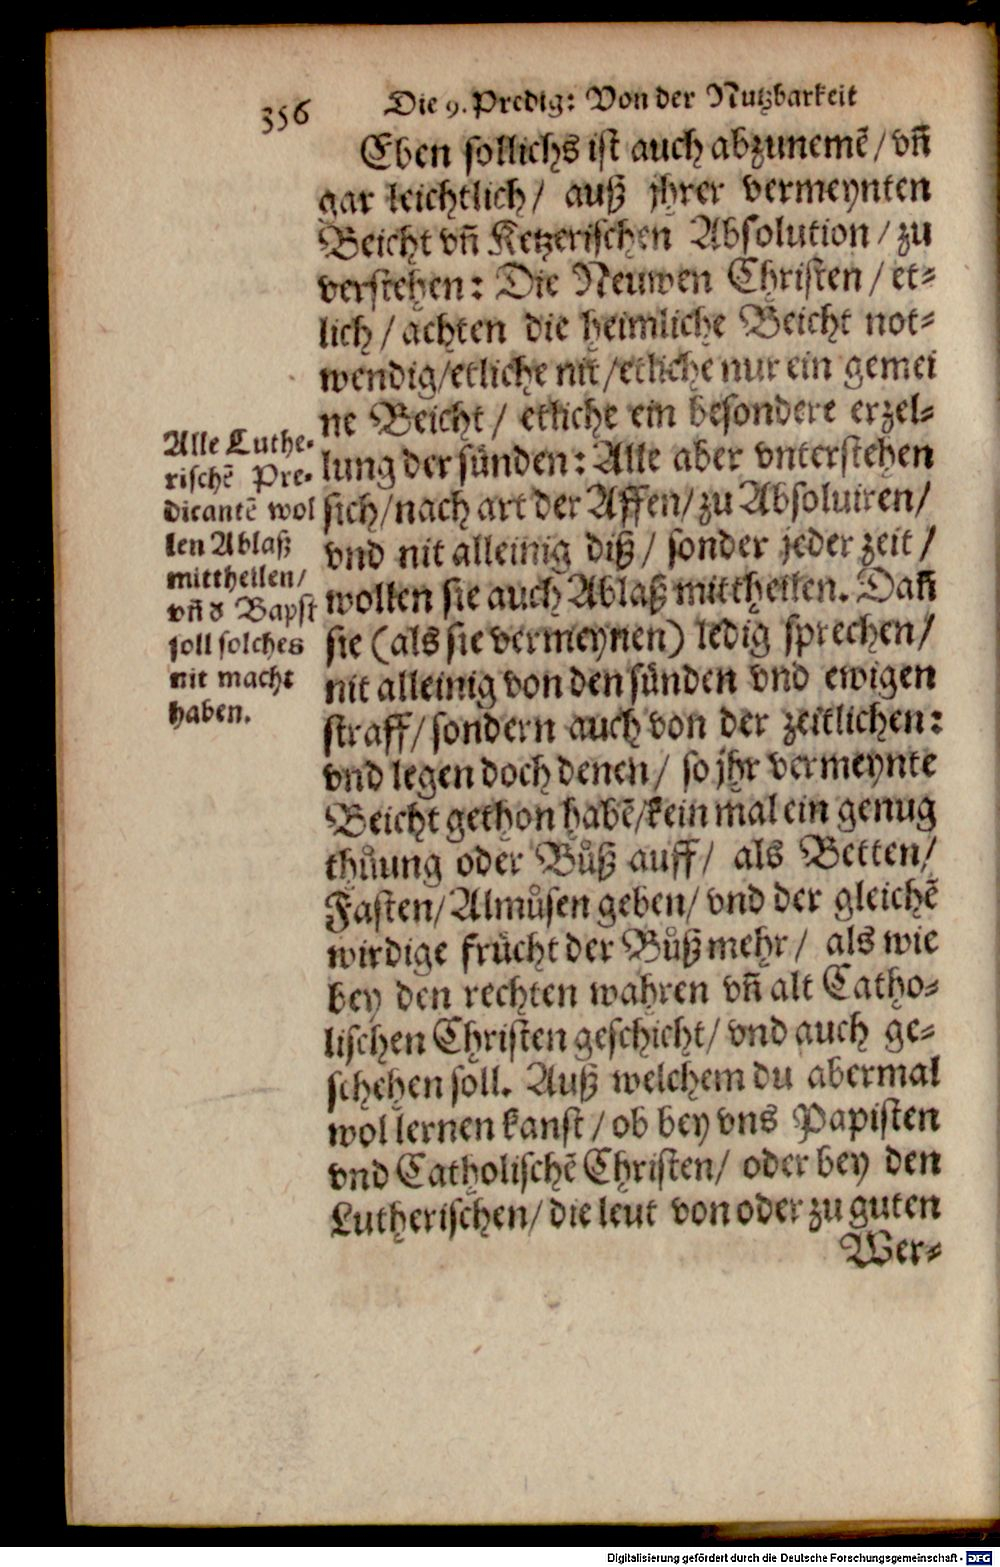 356
Die 9. Predig: Von der Nutzbarkeit
Eben sollichs ist auch abzunemẽ / vñ
gar leichtlich / auß jhrer vermeynten
Beicht vñ Ketzerischen Absolution / zu
verstehen: Die Neuwen Christen / et-
lich / achten die heimliche Beicht not-
wendig / etliche nit / etliche nur ein gemei
ne Beicht / etliche ein besondere erzel-
lung der sünden: Alle aber vnterstehen
sich / nach art der Affen / zu Absoluiren /
vnd nit alleinig diß / sonder jeder zeit /
wollen sie auch Ablaß mittheilen. Dañ
sie (als sie vermeynen) ledig sprechen /
nit alleinig von den sünden vnd ewigen
straff / sondern auch von der zeitlichen:
vnd legen doch denen / so jhr vermeynte
Beicht gethon habẽ / kein mal ein genug
thůung oder Bůß auff / als Betten /
Fasten / Almůsen geben / vnd der gleichẽ
wirdige frücht der Bůß mehr / als wie
bey den rechten wahren vñ alt Catho-
lischen Christen geschicht / vnd auch ge-
schehen soll. Auß welchem du abermal
wol lernen kanst / ob bey vns Papisten
vnd Catholischẽ Christen / oder bey den
Lutherischen / die leut von oder zu guten
Wer-
Alle Luthe-
rischẽ Pre-
dicantẽ wol
len Ablaß
mittheilen /
vñ d' Bapst
soll solches
nit macht
haben.
Digitalisierung gefördert durch die Deutsche Forschungsgemeinschaft - DFG